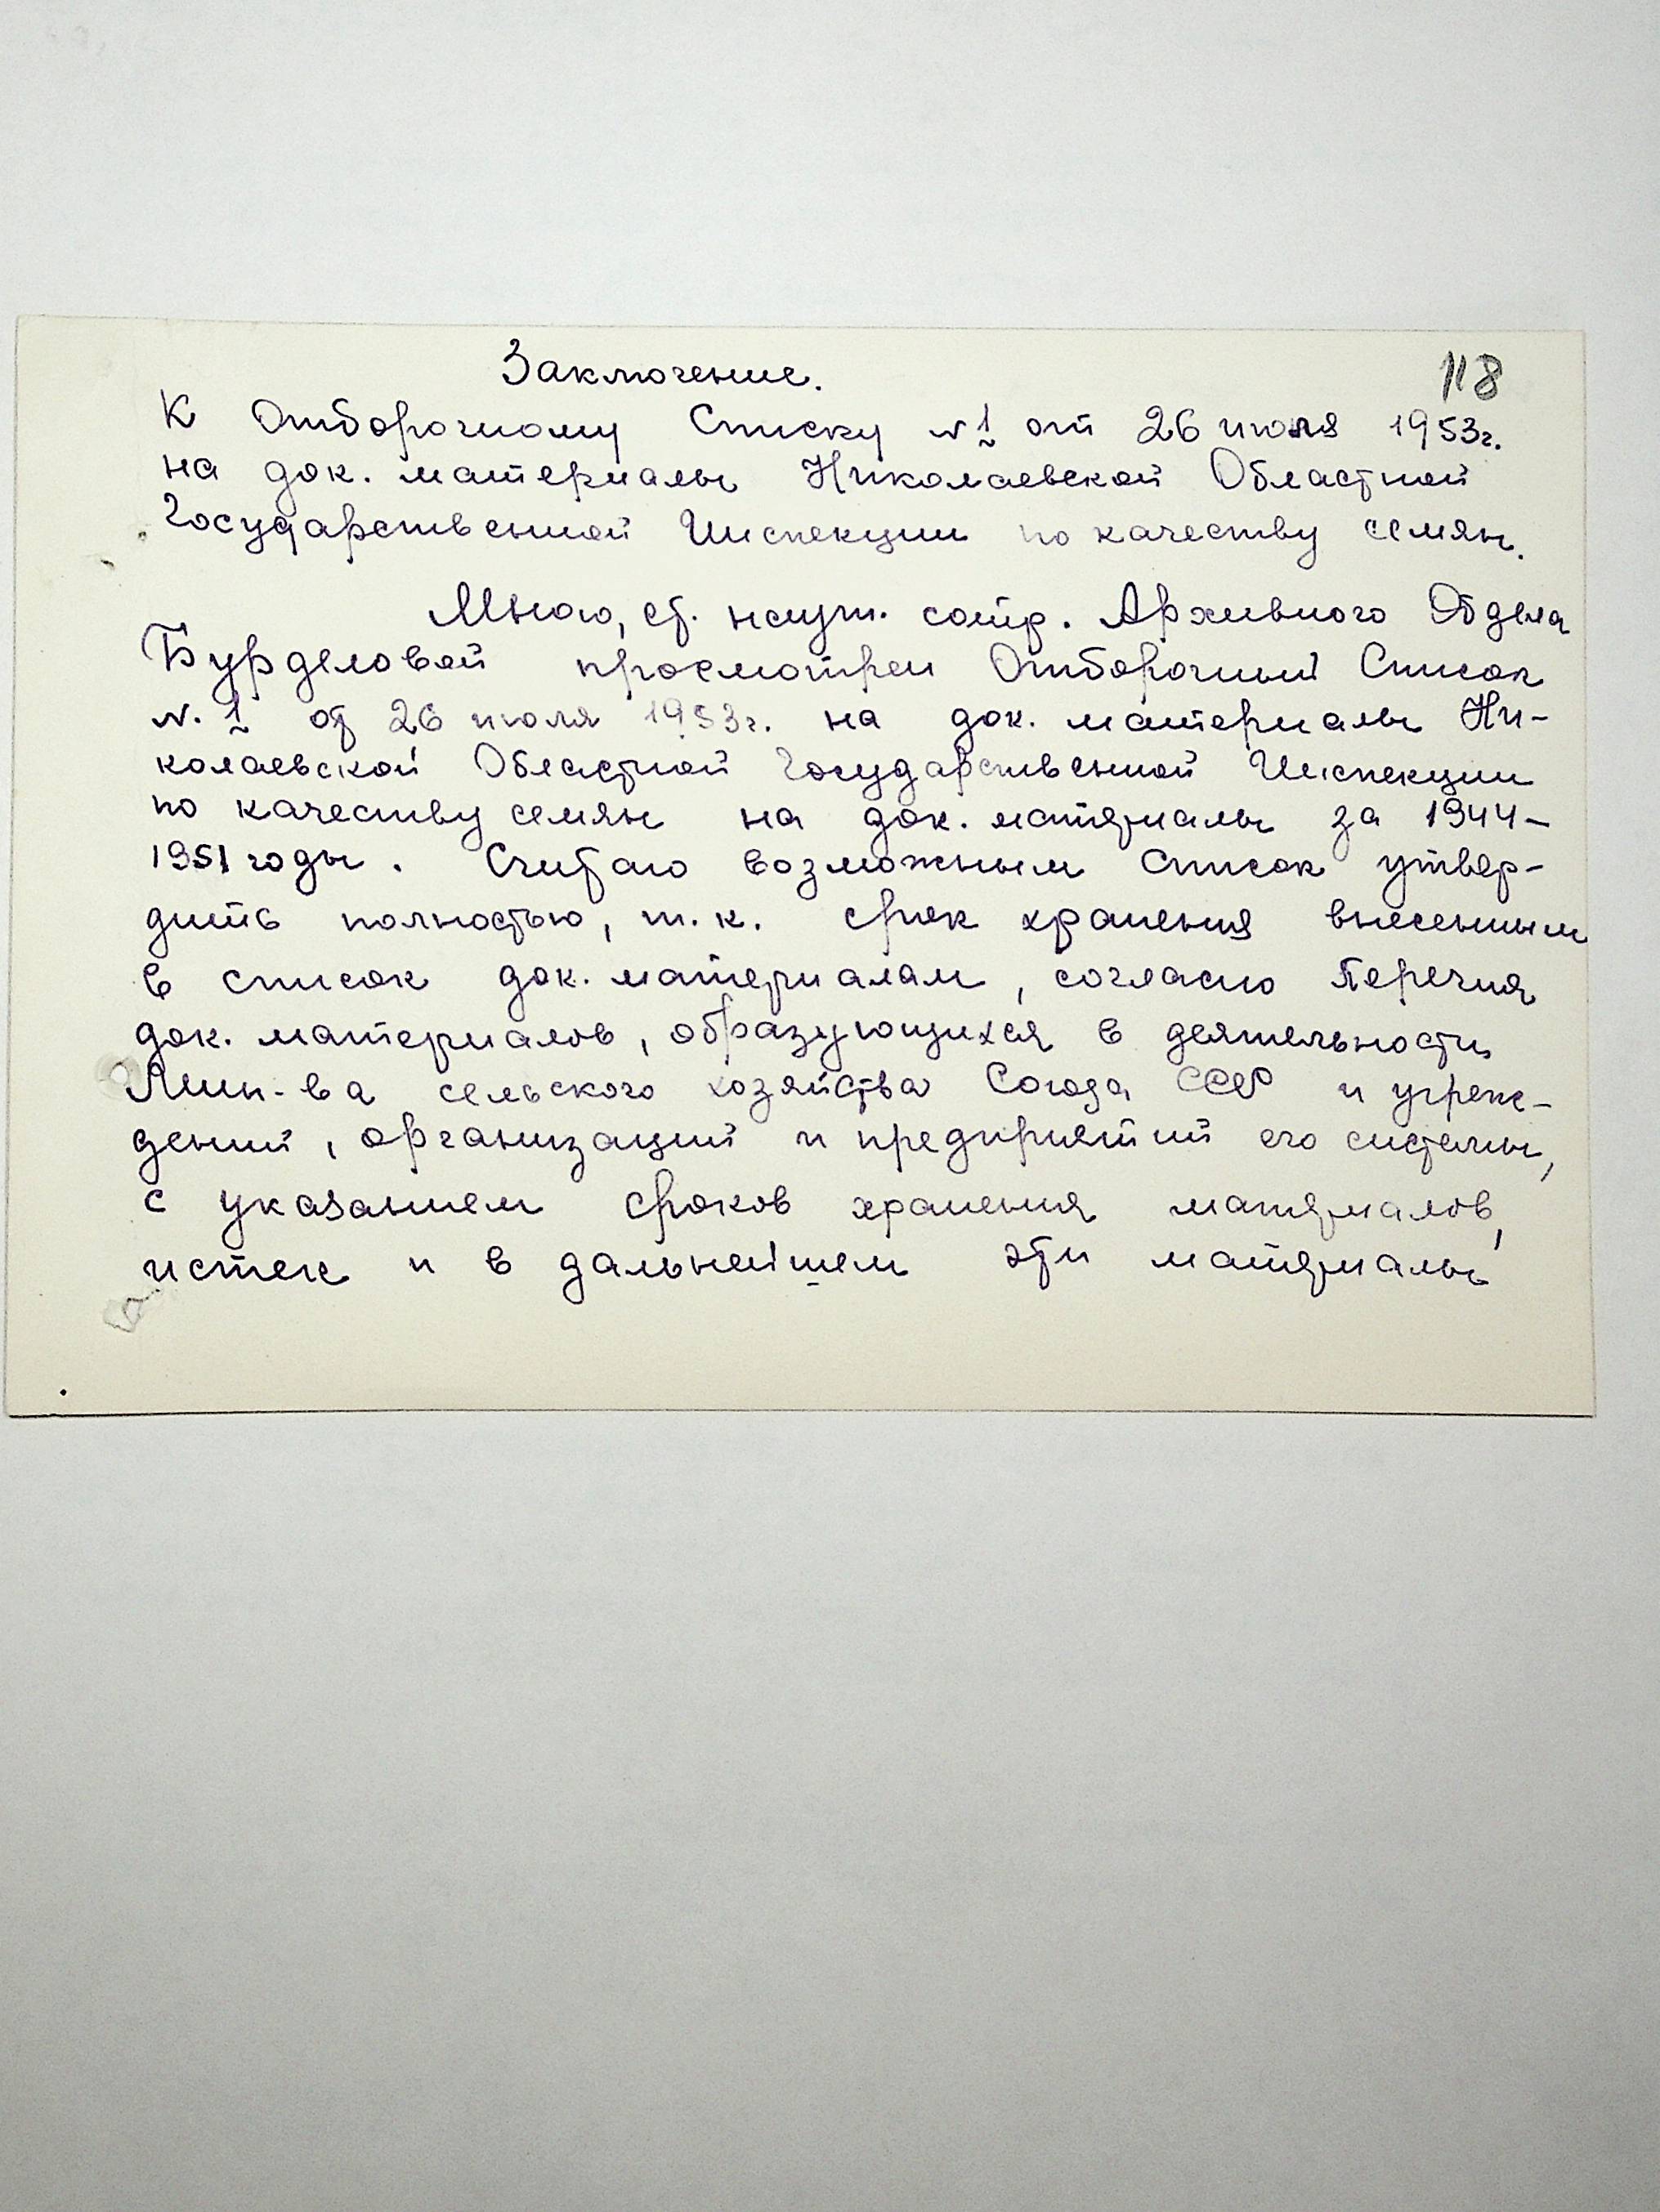 118
Заключение.
К Отборочному Списку N 1 от 26 июля 1953г.
на док. материалы Николаевской Областной
Государственной Инспекции по качеству семян.
Мною, ст. научн. сотр. Архивного Отдела
Бурделовой просмотрен Отборочный Список
N. 1 от 26 июля 1953г. на док. материалы Ни-
колаевской Областной Государственной Инспекции
по качеству семян на док. материалы за 1944-
1951 годы. Считаю возможным список утвер-
дить полностью, т.к. срок хранения внесенным
в список док. материалам, согласно Перечня
док. материалов, образующихся в деятельности
Мин-ва сельского хозяйства Союза ССР и учреж-
дений, организаций и предприятий его системы,
с указанием сроков хранения материалов,
истек и в дальнейшем эти материалы